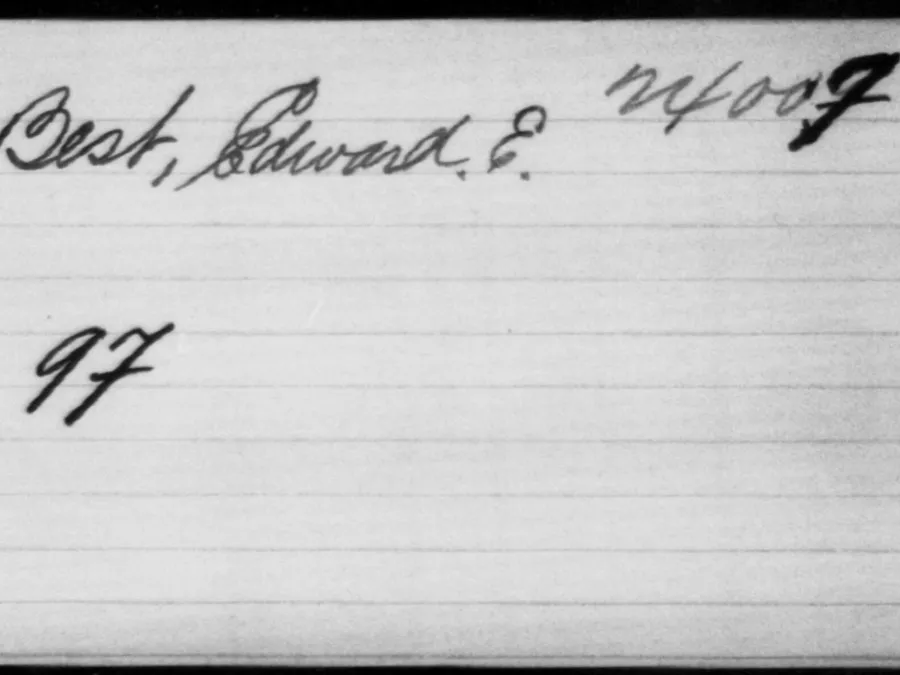 Best, Edward. E. 24007
97